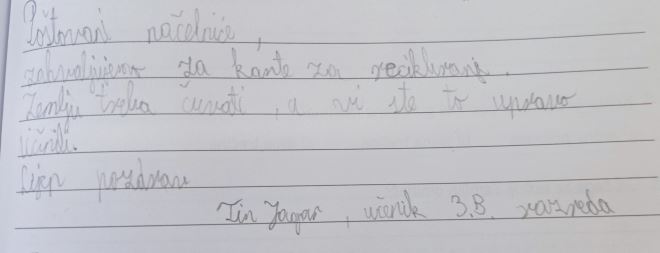 Poštovani načelniče,
zahvaljujem za kante za recikliranje.
Zemlju treba čuvati, a vi ste to upravo
učinili.
Lijep pozdrav
Tin Jagar, učenik 3.B. razreda